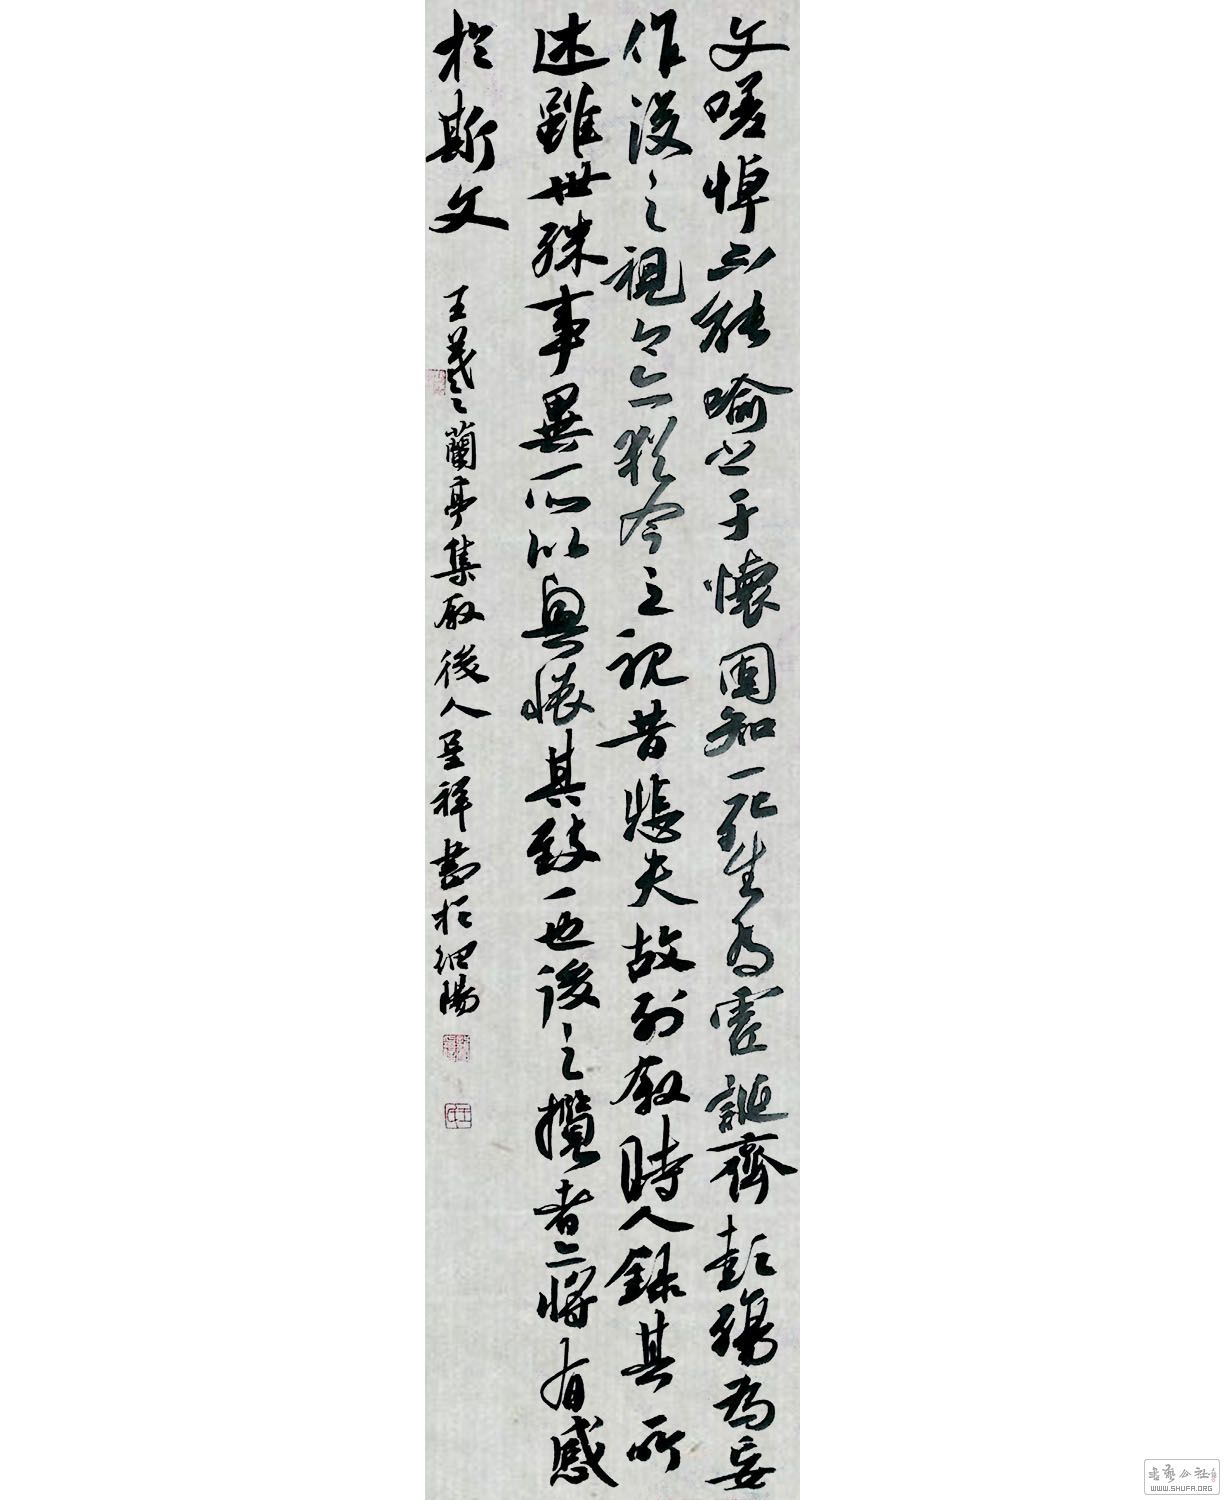 文嗟悼不能喻之于懷固知一死生為虛誕齊彭殤為妄
作後之視今亦猶今之視昔悲夫故列叙時人錄其所
述雖世殊事異所以興懷其致一也後之攬者亦將有感
於斯文
王羲之蘭亭集叙後人呈祥書於細陽
書藝公社
WWW.SHUFA.ORG